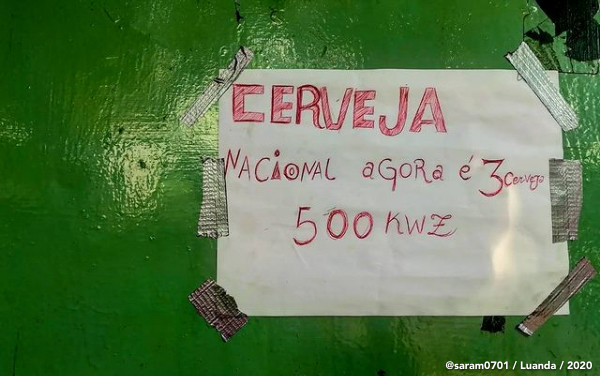 CERVEJA
NACIONAL aGORa é 3 cerveja
500 KWZ
@saram0701 / Luanda / 2020